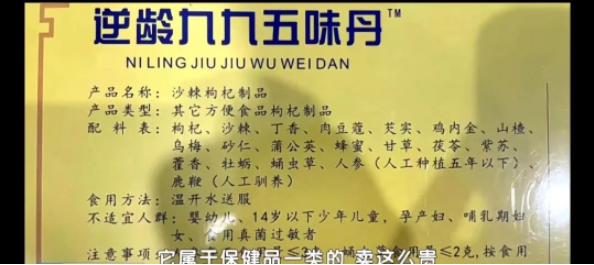 逆龄九九五味丹™
NI LING JIU JIU WU WEI DAN
产品名称：沙棘枸杞制品
产品类型：其它方便食品枸杞制品
配 料 表：枸杞、沙棘、丁香、肉豆蔻、芡实、鸡内金、山楂、
乌梅、砂仁、蒲公英、蜂蜜、甘草、茯苓、紫苏、
藿香、牡蛎、蛹虫草、人参（人工种植五年以下）、
鹿鞭（人工驯养）
食用方法：温开水送服
不适宜人群：婴幼儿、14岁以下少年儿童，孕产妇、哺乳期妇
女、食用真菌过敏者
注意事项
≤2克，按食用
它属于保健品一类的 卖这么贵